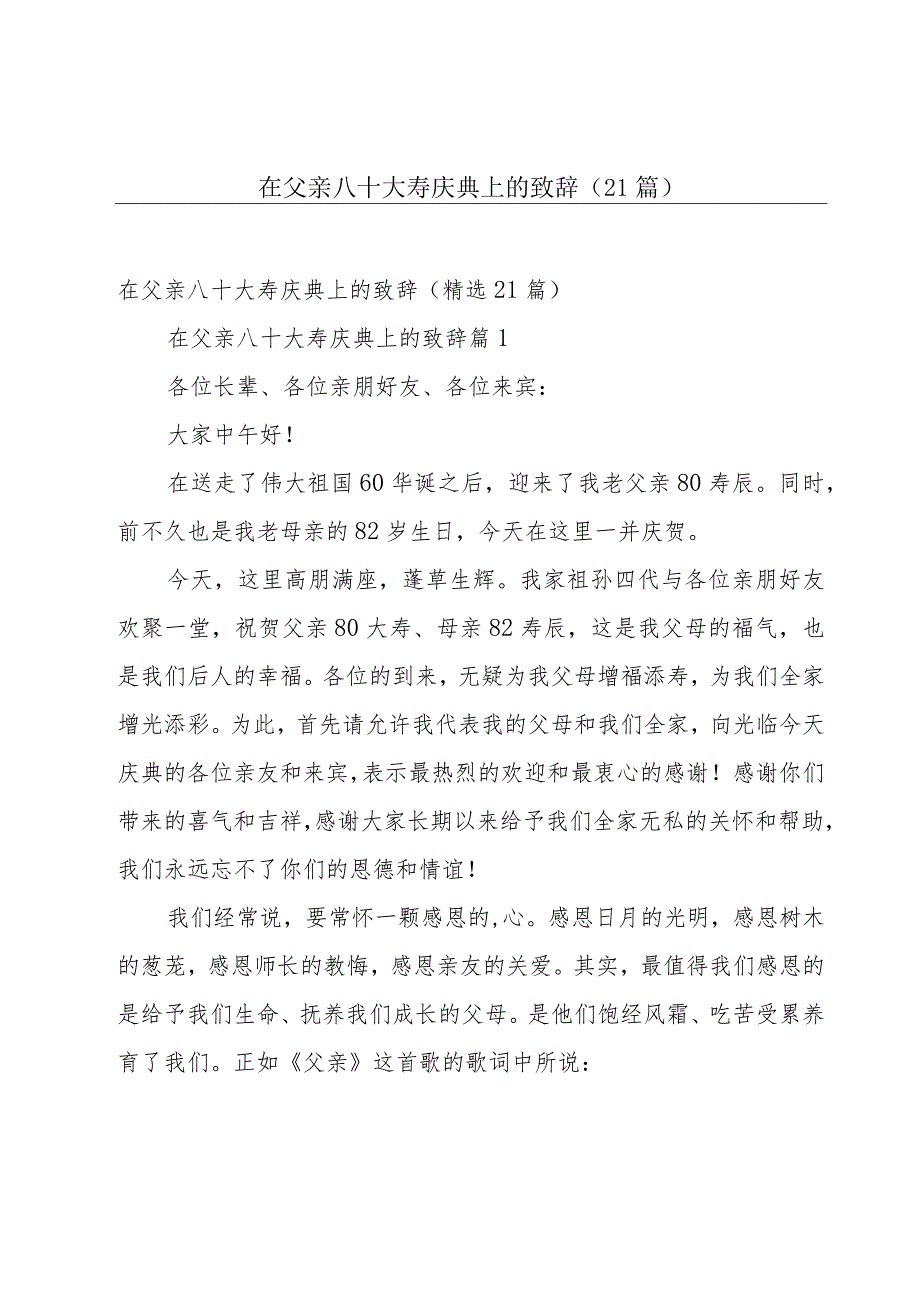 在父亲八十大寿庆典上的致辞（21 篇）
在父亲八十大寿庆典上的致辞（精选 21 篇）
在父亲八十大寿庆典上的致辞篇 1
各位长辈、各位亲朋好友、各位来宾：
大家中午好！
在送走了伟大祖国 60 华诞之后，迎来了我老父亲 80 寿辰。同时，
前不久也是我老母亲的 82 岁生日，今天在这里一并庆贺。
今天，这里高朋满座，蓬草生辉。我家祖孙四代与各位亲朋好友
欢聚一堂，祝贺父亲 80 大寿、母亲 82 寿辰，这是我父母的福气，也
是我们后人的幸福。各位的到来，无疑为我父母增福添寿，为我们全家
增光添彩。为此，首先请允许我代表我的父母和我们全家，向光临今天
庆典的各位亲友和来宾，表示最热烈的欢迎和最衷心的感谢！感谢你们
带来的喜气和吉祥，感谢大家长期以来给予我们全家无私的关怀和帮助，
我们永远忘不了你们的恩德和情谊！
我们经常说，要常怀一颗感恩的,心。感恩日月的光明，感恩树木
的葱茏，感恩师长的教悔，感恩亲友的关爱。其实，最值得我们感恩的
是给予我们生命、抚养我们成长的父母。是他们饱经风霜、吃苦受累养
育了我们。正如《父亲》这首歌的歌词中所说：